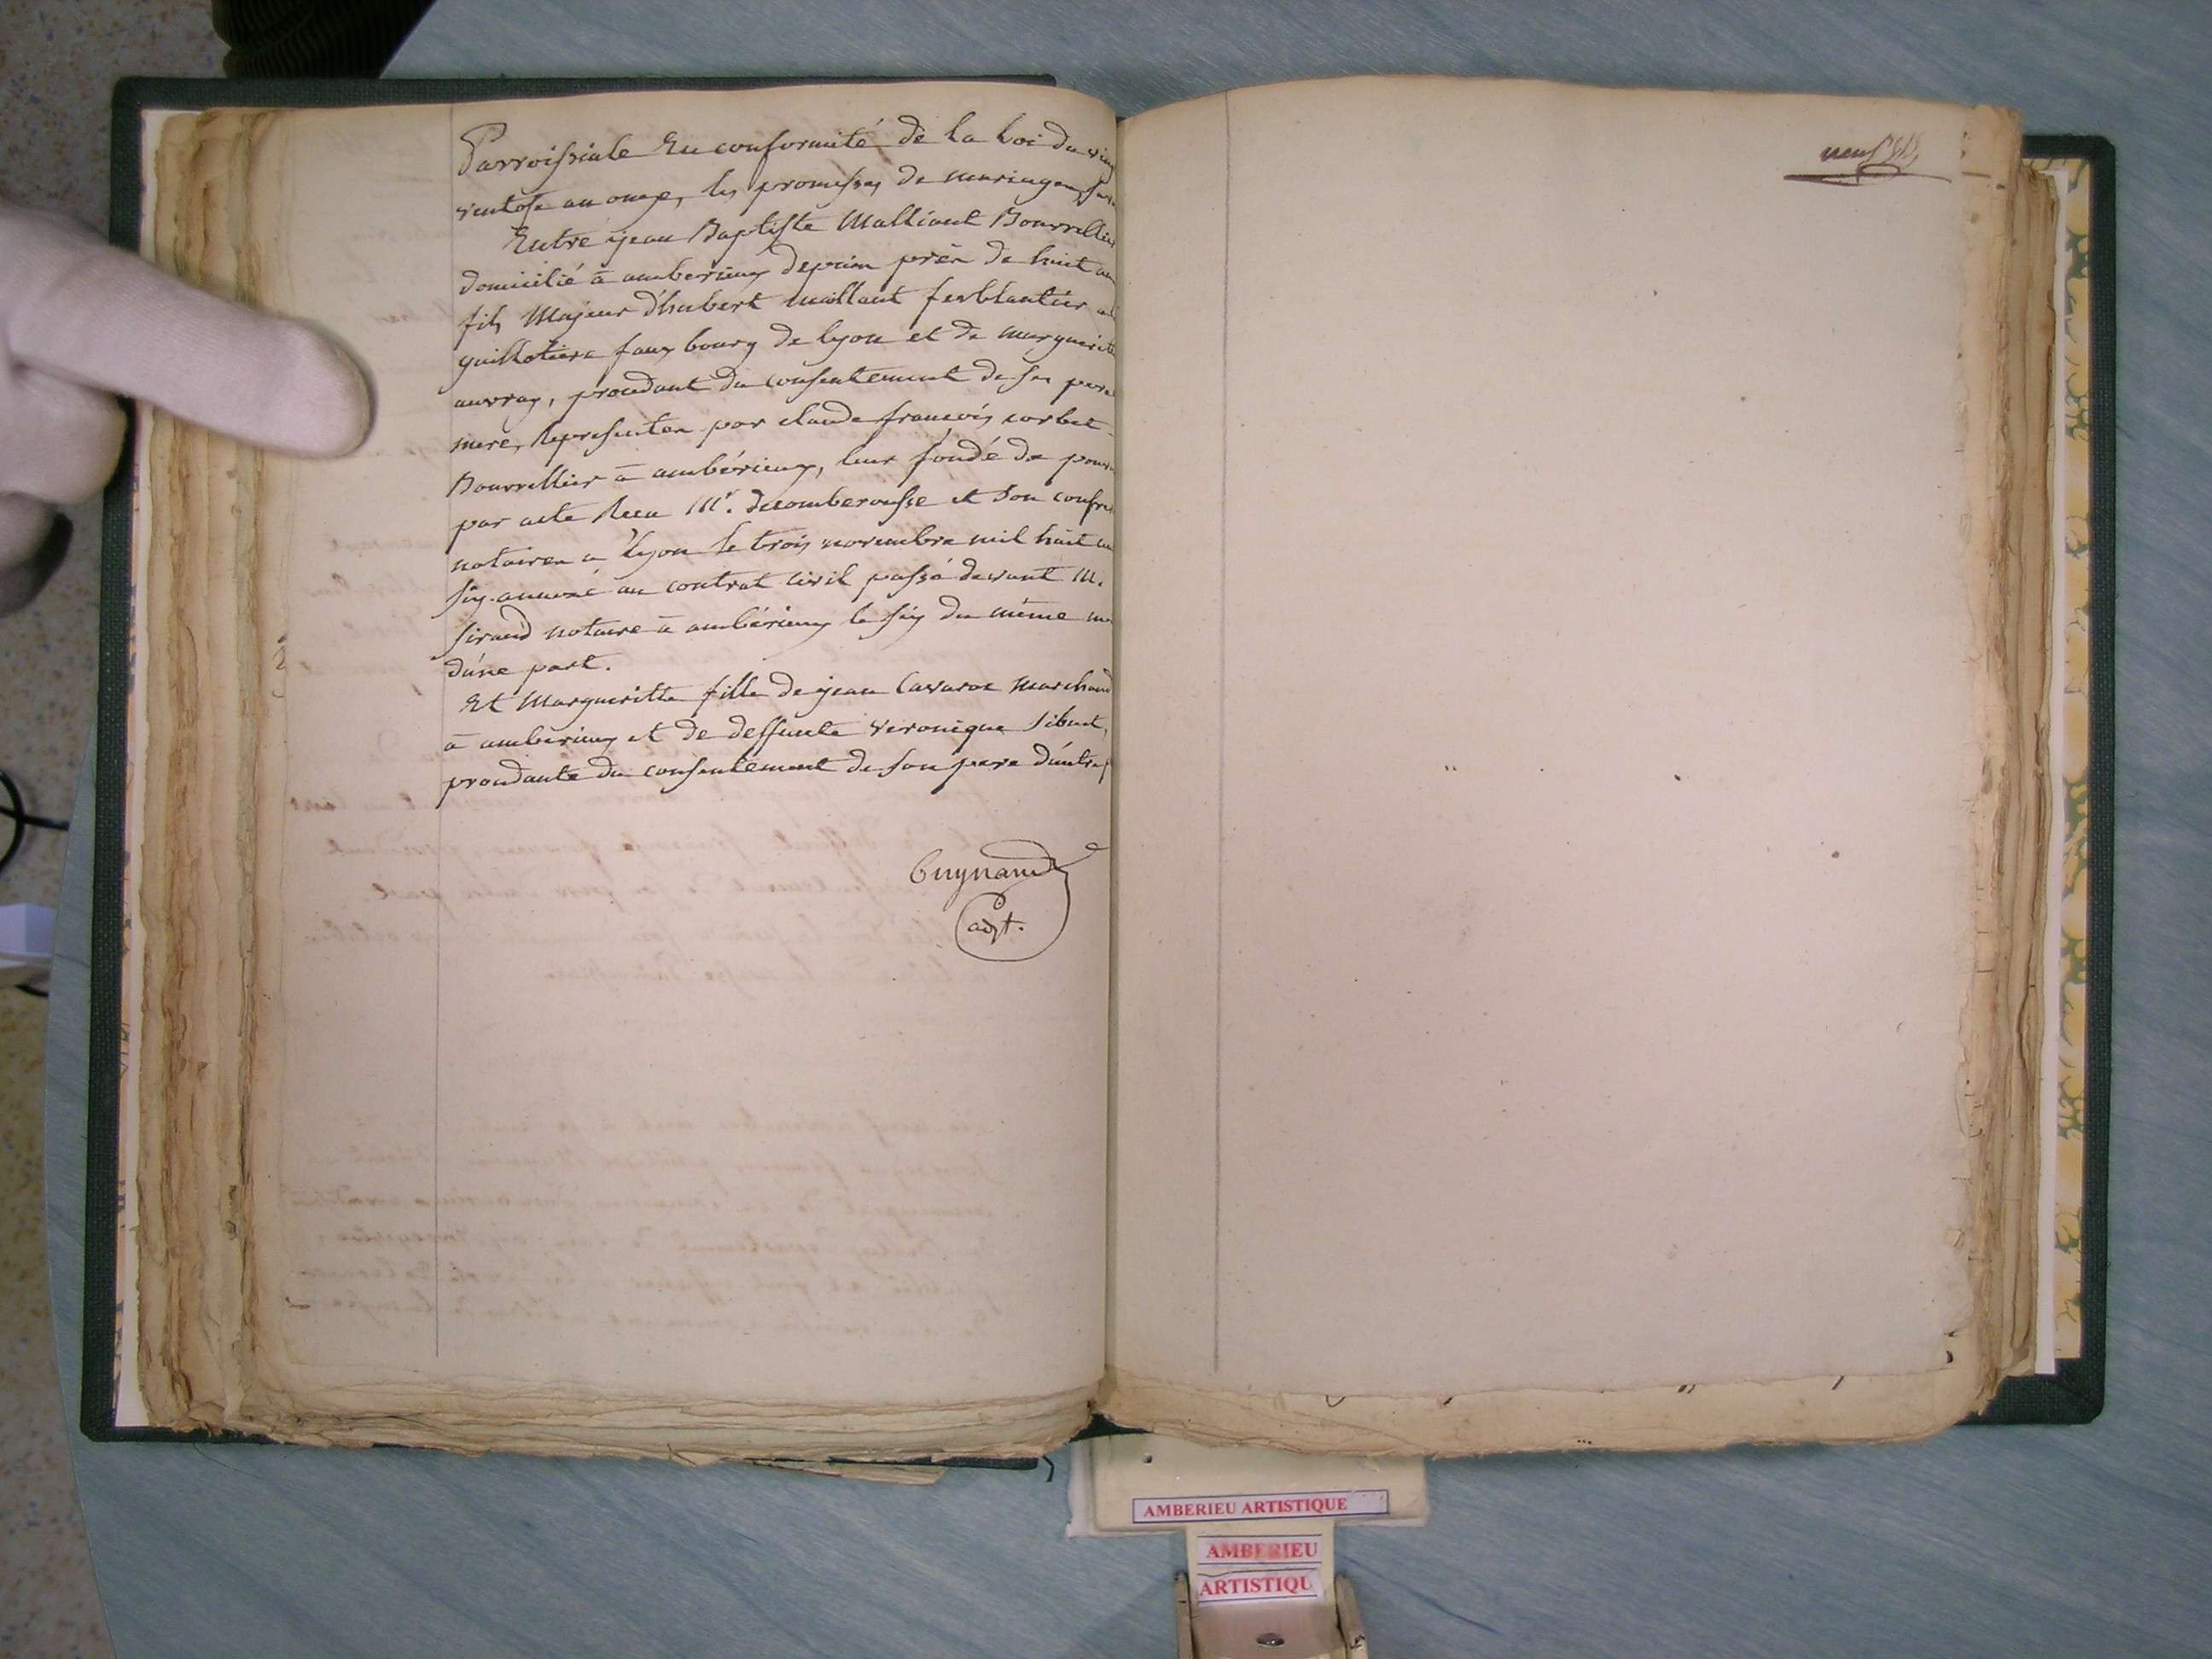 Parroissiale En conformité de la Loi du vin
ventose an onze, les promesses de mariage, sera
Entre jean Baptiste Malliant Bourrellier
domicilié à amberieux depuis près de huit an
fils Majeur d'hubert malliant ferblantier
guillotiere faux bourg de lyon et de marguerite
auvray, procédant du consentement de ses pere
mere, Representés par claude françois corbet
Bourrellier à ambérieux, leur fondé de pouv
par acte Recu Mr. decomberousse et son confre
notaires a lyon le trois novembre mil huit cen
six. annexé au contrat civil passé devant M.
sirand notaire à ambérieux le six du même m
d'úne part.
Et Margueritte fille de jean Cavaroc Marchand
à ambérieux et de deffunte veronique Sibuet,
procédante du consentement de son pere d'autre p
Guynand
adjt.
AMBERIEU ARTISTIQUE
AMBERIEU
ARTISTIQU